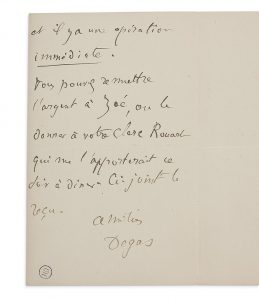 et il y a une opération
immédiate.
Vous pouvez remettre
l'argent à Zoé, ou le
donner à votre
qui me l'apporterait ce
soir à dîner. Ci-joint le
reçu.
Amitiés
Degas